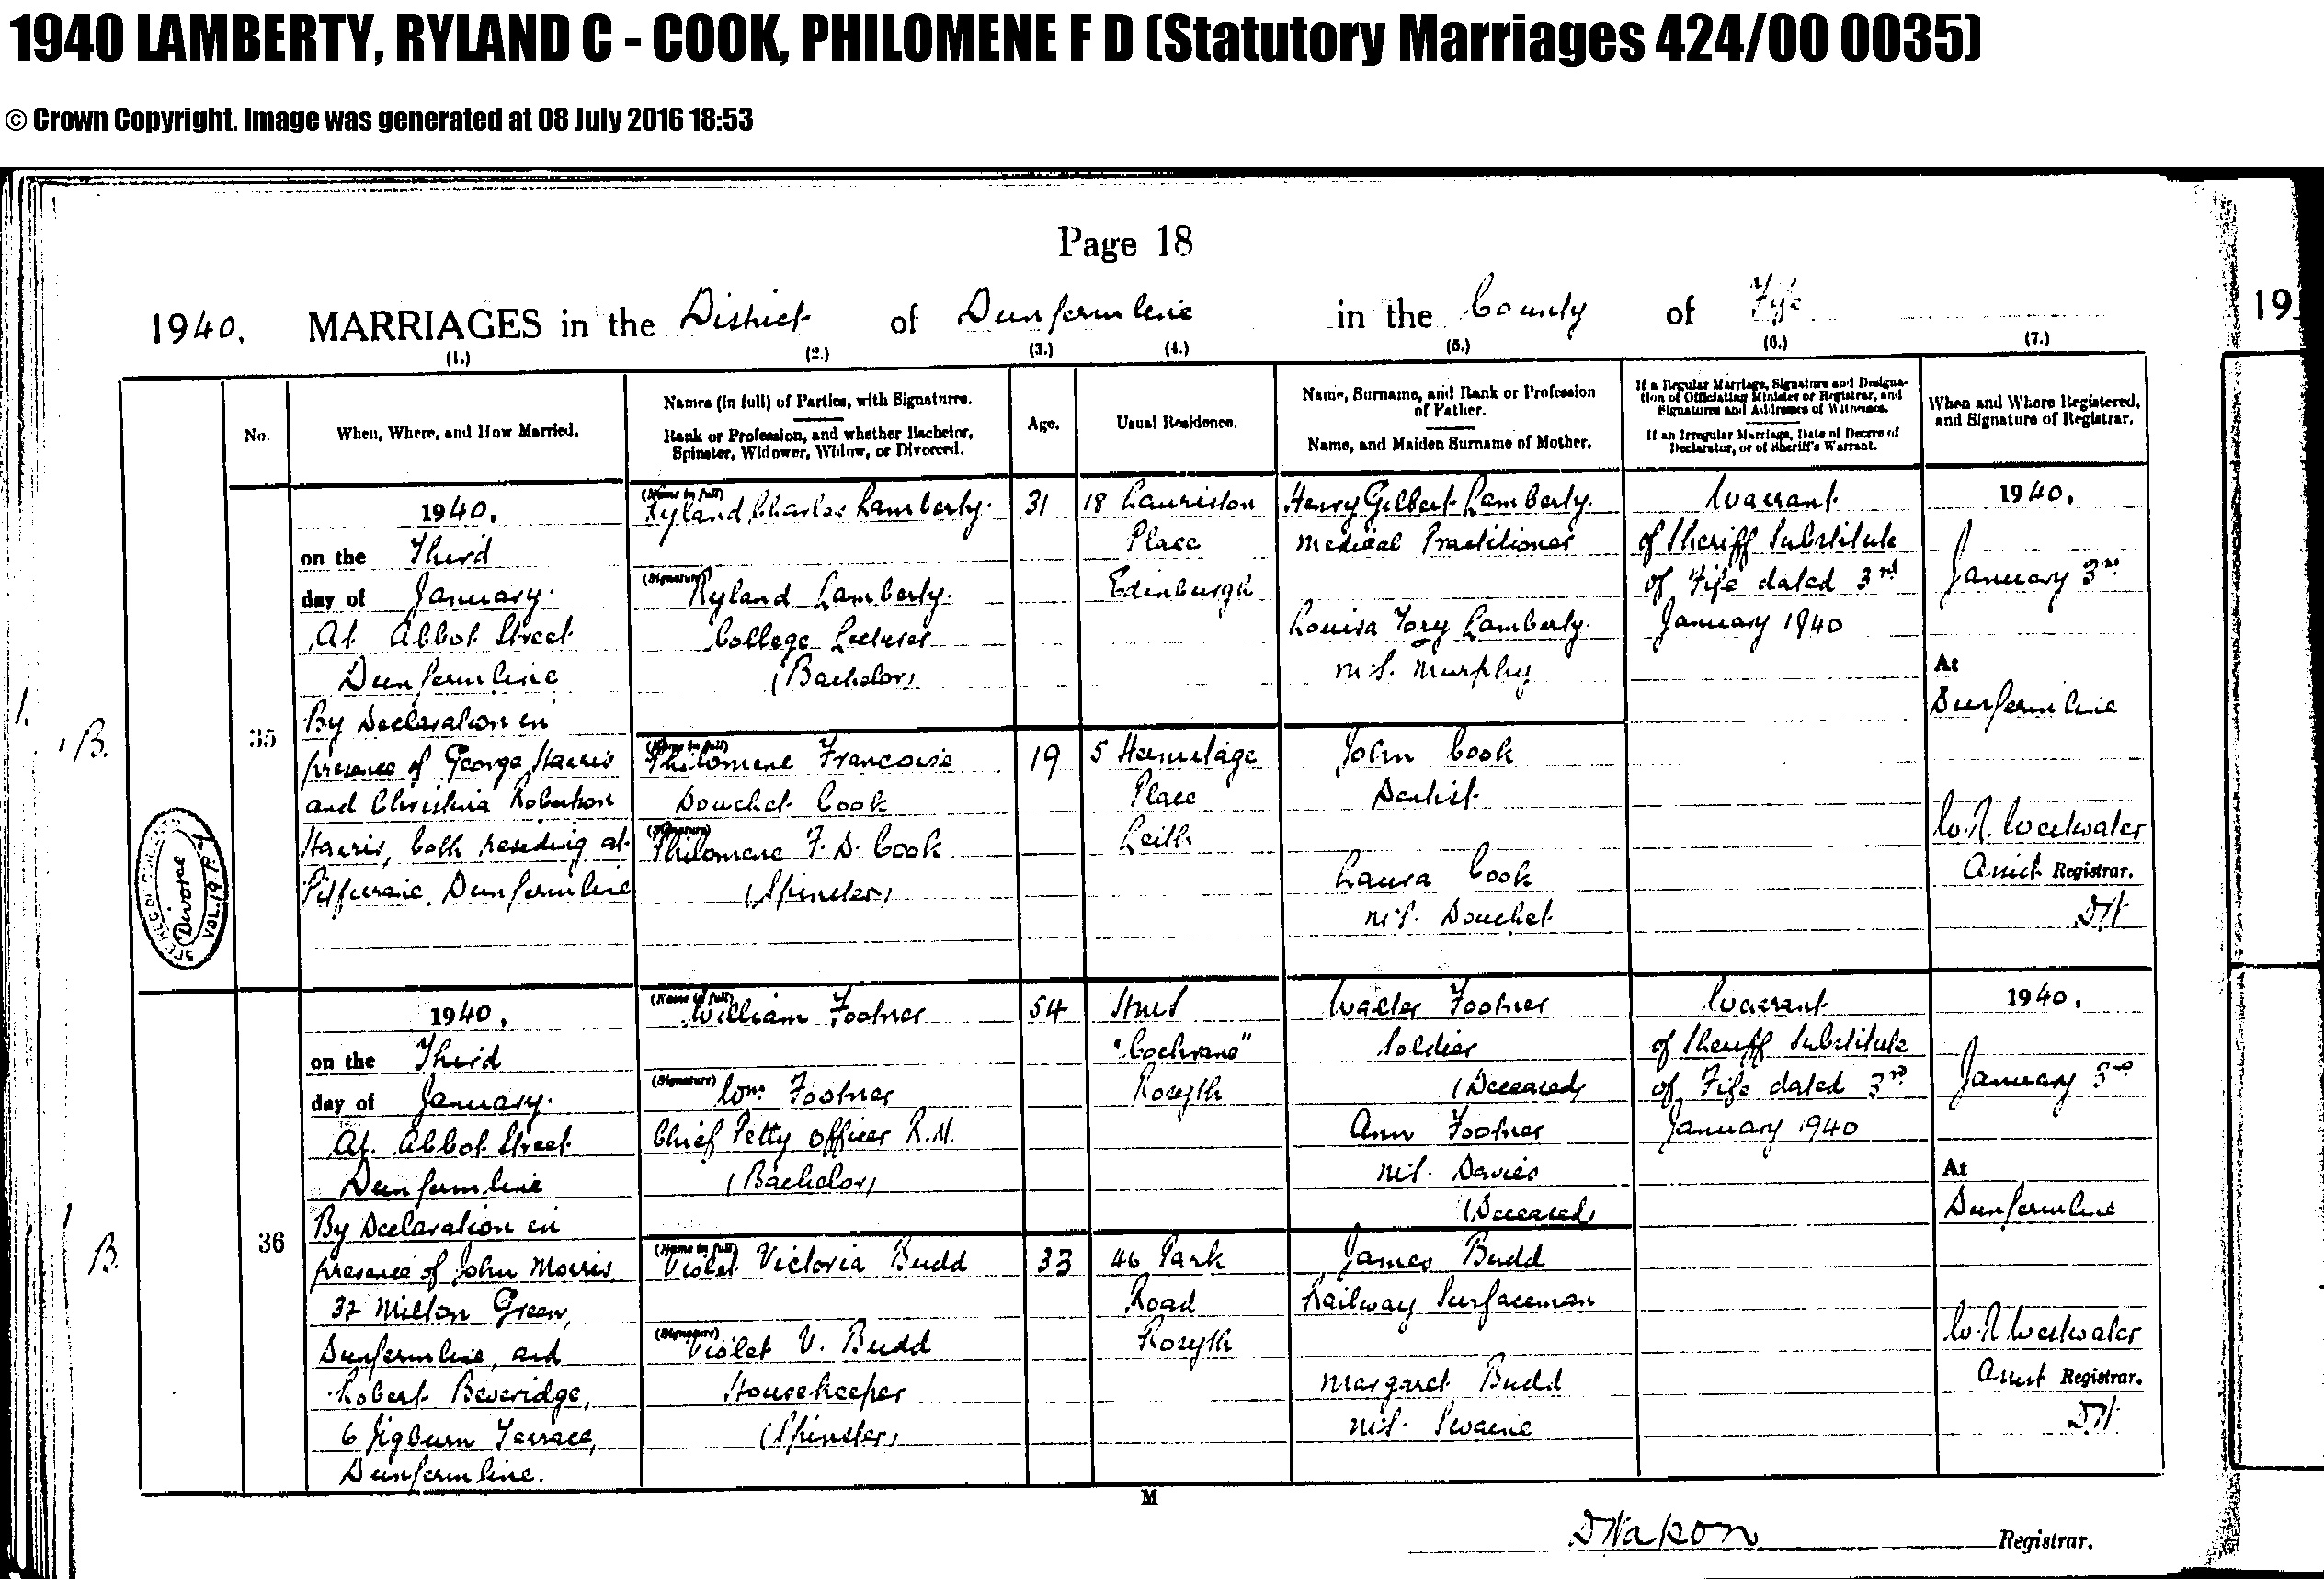 1940 LAMBERTY, RYLAND C - COOK, PHILOMENE F D (Statutory Marriages 424/00 0035)
© Crown Copyright. Image was generated at 08 July 2016 18:53
Page 18
1940. MARRIAGES in the District of Dunfermline in the County of Fife
19
(1.) (2.) (3.) (4.) (5.) (6.) (7.)
No.
When, Where, and How Married.
Names (in full) of Parties, with Signatures.
Rank or Profession, and whether Bachelor,
Spinster, Widower, Widow, or Divorced.
Age.
Usual Residence.
Name, Surname, and Rank or Profession
of Father.
Name, and Maiden Surname of Mother.
If a Regular Marriage, Signature and Designa-
tion of Officiating Minister or Registrar, and
Signatures and Addresses of Witnesses.
If an Irregular Marriage, Date of Decree of
Declarator, or of Sheriff's Warrant.
When and Where Registered,
and Signature of Registrar.
B.
35
Divorce
1940.
on the Third
day of January.
At Abbot Street
Dunfermline
By Declaration in
presence of George Harris
and Christina Robertson
Harris, both residing at
Dunfermline
(Name in full)
Ryland Charles Lamberty.
(Signature)
Ryland Lamberty.
College Lecturer
(Bachelor)
31
18 Lauriston
Place
Edinburgh
Henry Gilbert Lamberty.
Medical Practitioner
Louisa Tory Lamberty.
M.S. Murphy
(Name in full)
Philomene Francoise
Douchet Cook
(Signature)
Philomene F. D. Cook
(Spinster)
19
5 Hermitage
Place
Leith
John Cook
Dentist
Laura Cook
M.S. Douchet
Warrant
of Sheriff Substitute
of Fife dated 3rd
January 1940
1940.
January 3rd
At
Dunfermline
Assist Registrar.
DH
B.
36
1940.
on the Third
day of January.
At Abbot Street
Dunfermline
By Declaration in
presence of John Morris
32 Milton Green,
Dunfermline, and
Robert Beveridge,
6 Terrace,
Dunfermline.
(Name in full)
William Footner
(Signature)
Wm. Footner
Chief Petty Officer R.N.
(Bachelor)
54
"Cochrane"
Rosyth
Walter Footner
Soldier
(Deceased)
Ann Footner
M.S. Davies
(Deceased)
(Name in full)
Violet Victoria Budd
(Signature)
Violet V. Budd
Housekeeper
(Spinster)
33
46 Park
Road
Rosyth
James Budd
Railway Surfaceman
Margaret Budd
M.S. Swaine
Warrant
of Sheriff Substitute
of Fife dated 3rd
January 1940
1940.
January 3rd
At
Dunfermline
Assist Registrar.
DH
M
Registrar.